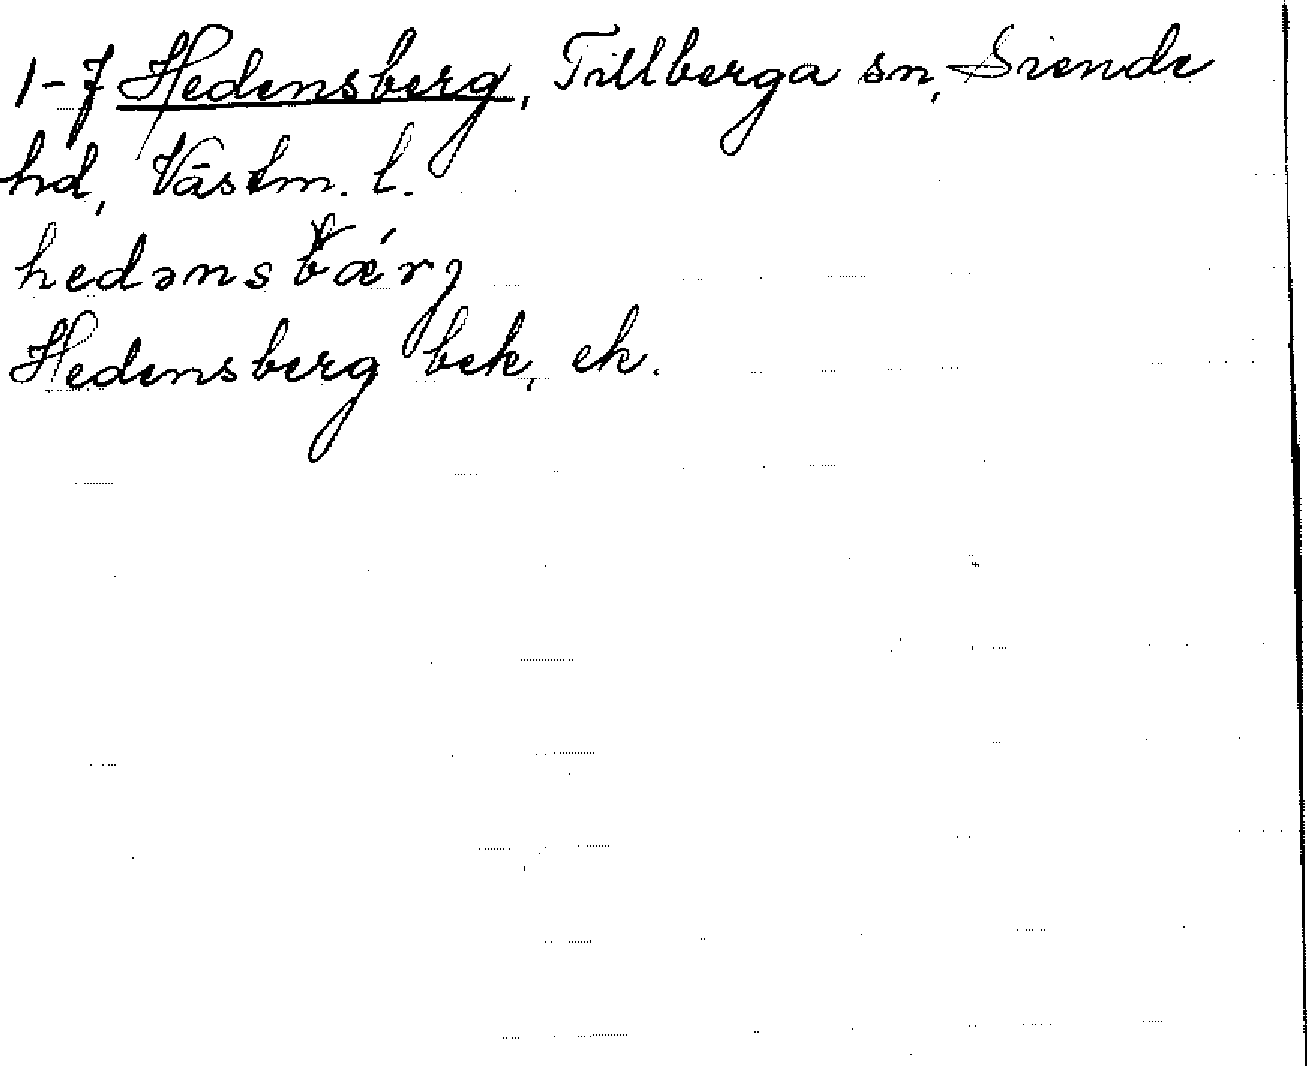 1-7 Hedensberg, Tillberga sn, Siende
hd, Västm. l.
hedənsbǽrj
Hedensberg bek, ek.